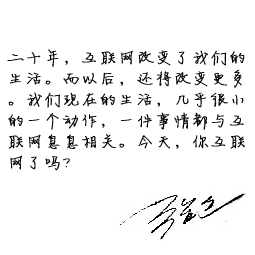 二十年，互联网改变了我们的
生活。而以后，还将改变更多
。我们现在的生活，几乎很小
的一个动作，一件事情都与互
联网息息相关。今天，你互联
网了吗？